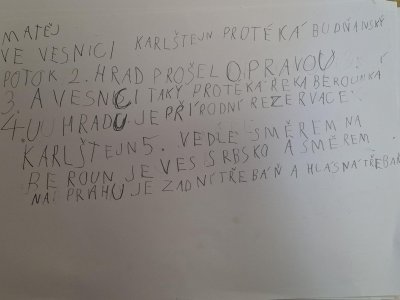 MATĚJ
VE VESNICI KARLŠTEJN PROTÉKÁ BUDŇANSKÝ
POTOK 2. HRAD PROŠEL OPRAVOU
3. A VESNICI TAKY PROTÉKA ŘEKA BEROUNKA
4. U HRADU JE PŘÍRODNÍ REZERVACE.
KARLŠTEJN 5. VEDLE SMĚREM NA
BEROUN JE VES SRBSKO A SMĚREM
NA PRAHU JE ZADNÍ TŘEBÁŇ A HLÁSNÁ TŘEBAŇ